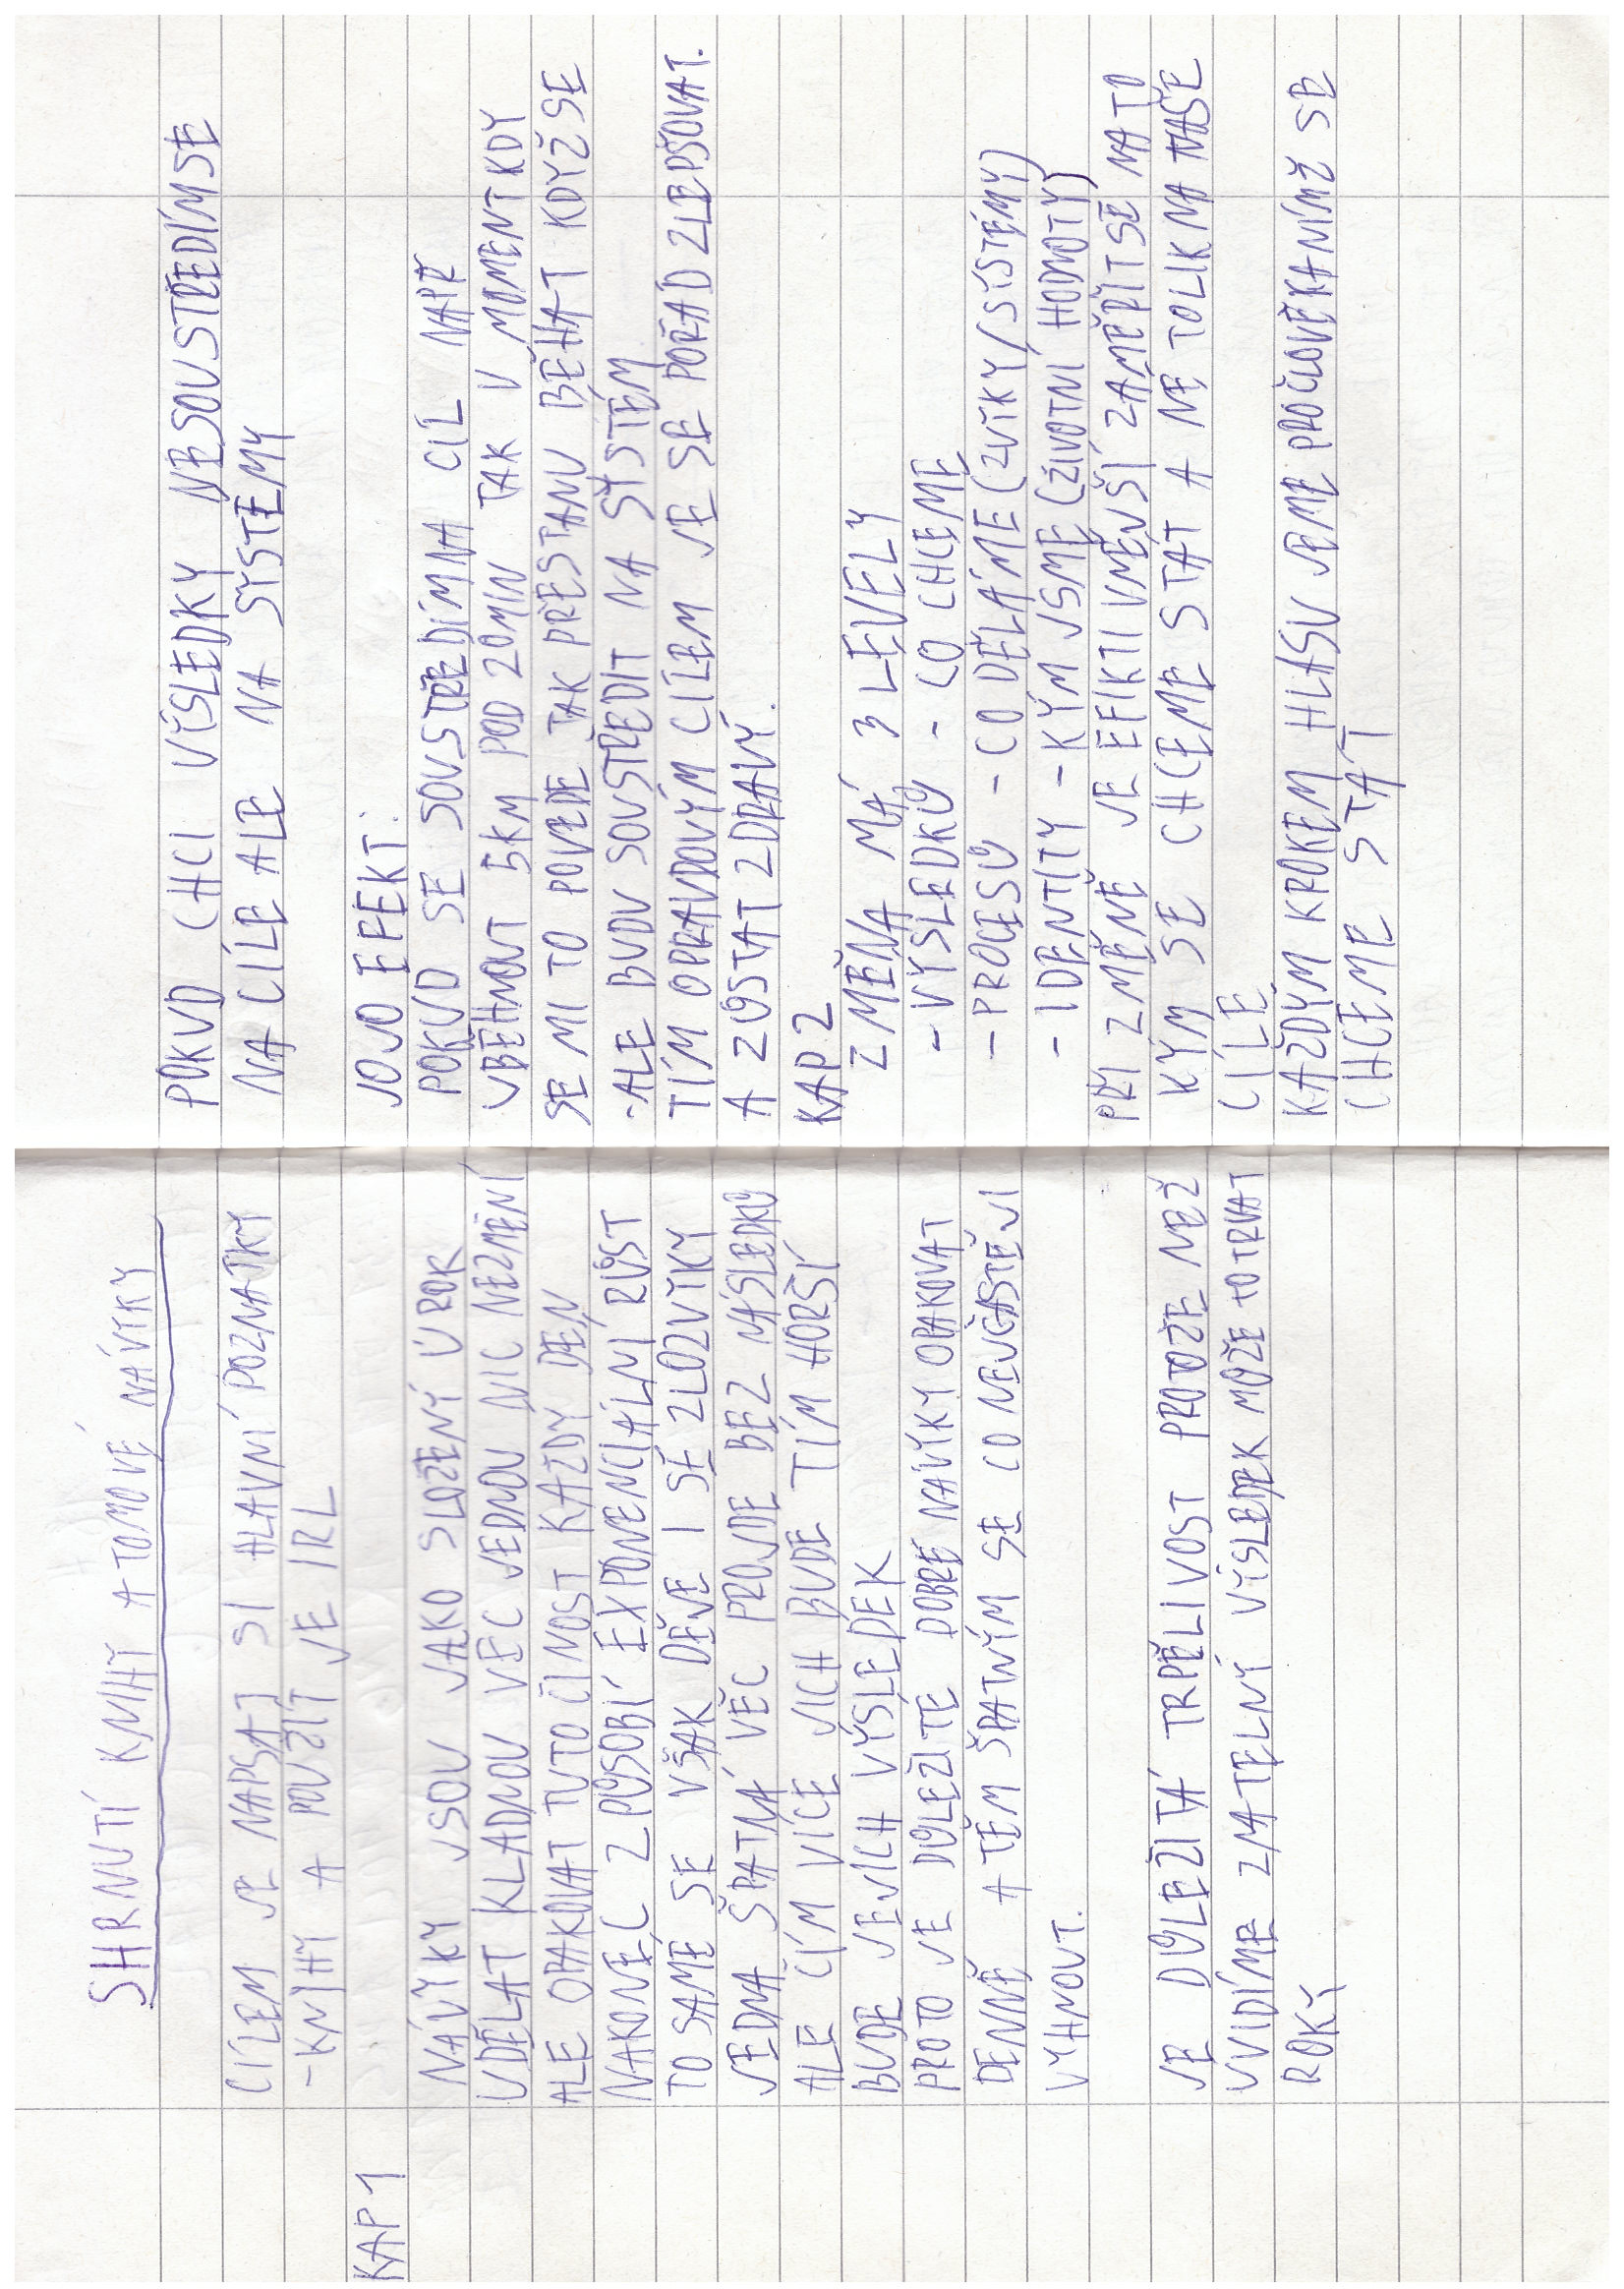 SHRNUTÍ KNIHY ATOMOVÉ NÁVYKY
CÍLEM JE NAPSAT SI HLAVNÍ POZNATKY
-KNIHY A POUŽÍT JE IRL
KAP 1
NÁVYKY JSOU JAKO SLOŽENÝ ÚROK
UDĚLAT KLADNOU VĚC JEDNOU NIC NEZMĚNÍ
ALE OPAKOVAT TUTO ČINOST KAŽDÝ DEN
NAKONEC ZPŮSOBÍ EXPONENCIÁLNÍ RŮST
TO SAMÉ SE VŠAK DĚJE I SE ZLOZVYKY
JEDNA ŠPATNÁ VĚC PROJDE BEZ NÁSLEDKŮ
ALE ČÍM VÍCE JICH BUDE TÍM HORŠÍ
BUDE JEJICH VÝSLEDEK
PROTO JE DŮLEŽITÉ DOBRÉ NÁVYKY OPAKOVAT
DENNĚ A TĚM ŠPATNÝM SE CO NEJČASTĚJI
VYHNOUT.
JE DŮLEŽITÁ TRPĚLIVOST PROTOŽE NEŽ
UVIDÍME ZNATELNÝ VÝSLEDEK MŮŽE TO TRVAT
ROKY
POKUD CHCI VÝSLEDKY NESOUSTŘEDÍM SE
NA CÍLE ALE NA SYSTÉMY
JOJO EFEKT:
POKUD SE SOUSTŘEDÍM NA CÍL NAPŘ
UBĚHNOUT 5KM POD 20MIN TAK V MOMENT KDY
SE MI TO POVEDE TAK PŘESTANU BĚHAT KDYŽ SE
-ALE BUDU SOUSTŘEDIT NA SYSTÉM
TÍM OPRAVDOVÝM CÍLEM JE SE POŘÁD ZLEPŠOVAT.
A ZŮSTAT ZDRAVÝ.
KAP 2
ZMĚNA MÁ 3 LEVELY
- VÝSLEDKŮ - CO CHCEME
- PROCESŮ - CO DĚLÁME (ZVYKY/SYSTÉMY)
- IDENTITY - KÝM JSME (ŽIVOTNÍ HODNOTY)
PŘI ZMĚNĚ JE EFIKTIVNĚJŠÍ ZAMĚŘIT SE NA TO
KÝM SE CHCEME STÁT A NE TOLIK NA NAŠE
CÍLE
KAŽDÝM KROKEM HLASUJEME PRO ČLOVĚKA NÍMŽ SE
CHCEME STÁT